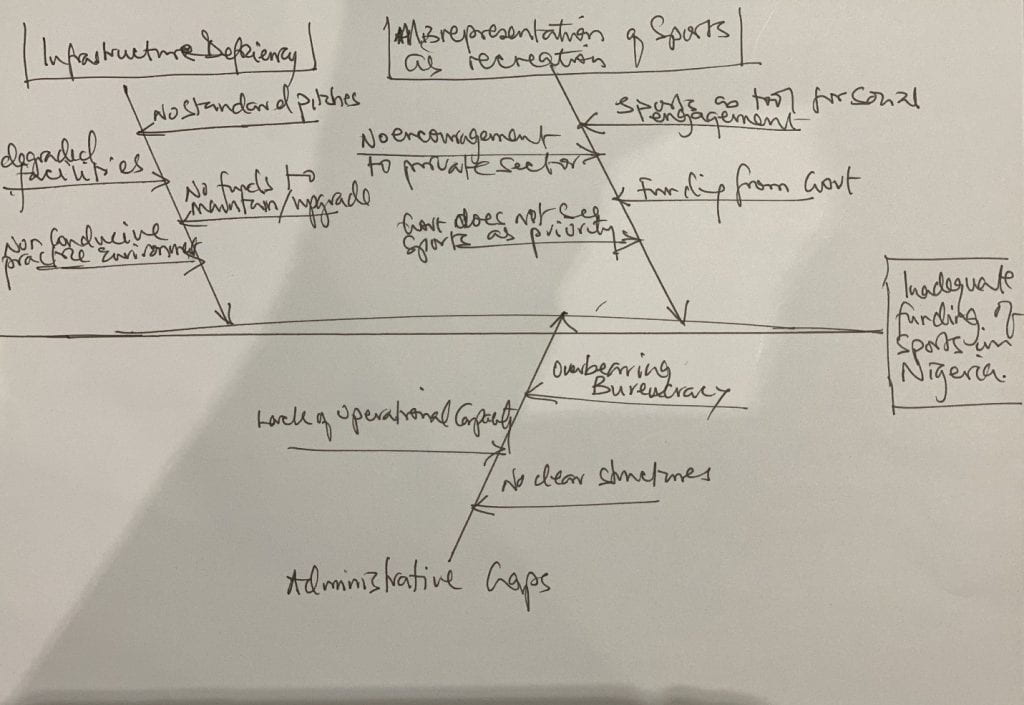 Infrastructure Deficiency
Misrepresentation of Sports
as recreation
No standard pitches
degraded
facilities
No funds to
maintain/upgrade
Non conducive
practice environment
Sports as tool for social
engagement
No encouragement
to private sector
Funding from Govt
Govt does not see
sports as priority
Inadequate
funding of
sports in
Nigeria.
Overbearing
Bureucracy
Lack of Operational Capacity
No clear structures
Administrative Gaps